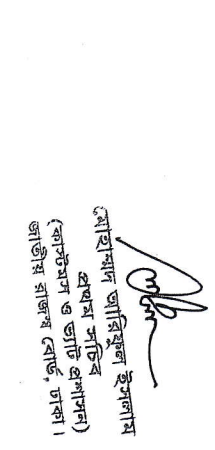 মোহাম্মদ আরিফুল ইসলাম
প্রথম সচিব
(কাস্টমস ও ভ্যাট প্রশাসন)
জাতীয় রাজস্ব বোর্ড, ঢাকা।